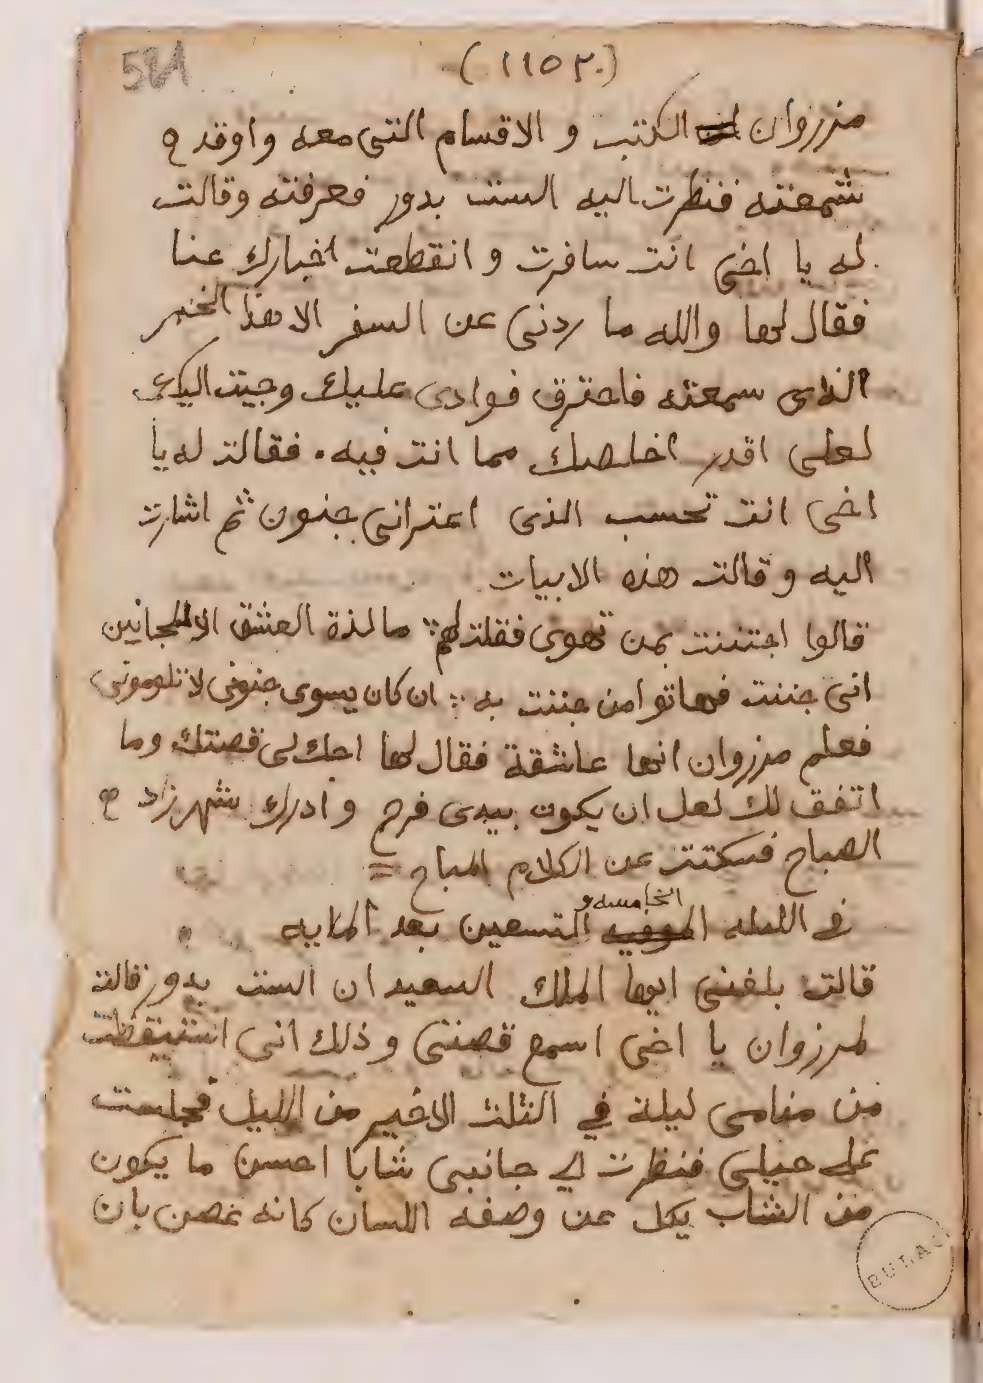 581
(١١٥٢)
مرزوان الكتب و الاقسام التى معه واوقد
شمعته فنظرت اليه الست بدور فعرفته وقالت
له يا اخى انت سافرت و انقطعت اخبارك عنا
فقال لها والله ما ردنى عن السفر الا هذا الخبر
الذى سمعته فاحترق فوادى عليك وجيت اليك
لعلى اقدر اخلصك مما انت فيه . فقالت له يا
اخى انت تحسب الذى اعترانى جنون ثم اشارت
اليه و قالت هذه الابيات
قالوا اجتننت بمن تهوى فقلت لهم ؞ ما لذة العشق الا للمجانين
انى جننت فهاتوا من جننت به ؞ ان كان يسوى جنونى لا تلومونى
فعلم مرزوان انها عاشقة فقال لها احك لى قصتك وما
اتفق لك لعل ان يكون بيدى فرج و ادرك شهرزاد
الصباح فسكتت عن الكلام المباح =
فى الليله الخامسه و التسعين بعد المايه
قالت بلغنى ايها الملك السعيد ان الست بدور قالت
لمرزوان يا اخى اسمع قصتى و ذلك انى استيقظت
من منامى ليلة في الثلث الاخير من الليل فجلست
على حيلى فنظرت الى جانبى شابا احسن ما يكون
من الشاب يكل عن وصفه اللسان كانه غصن بان
BULAC